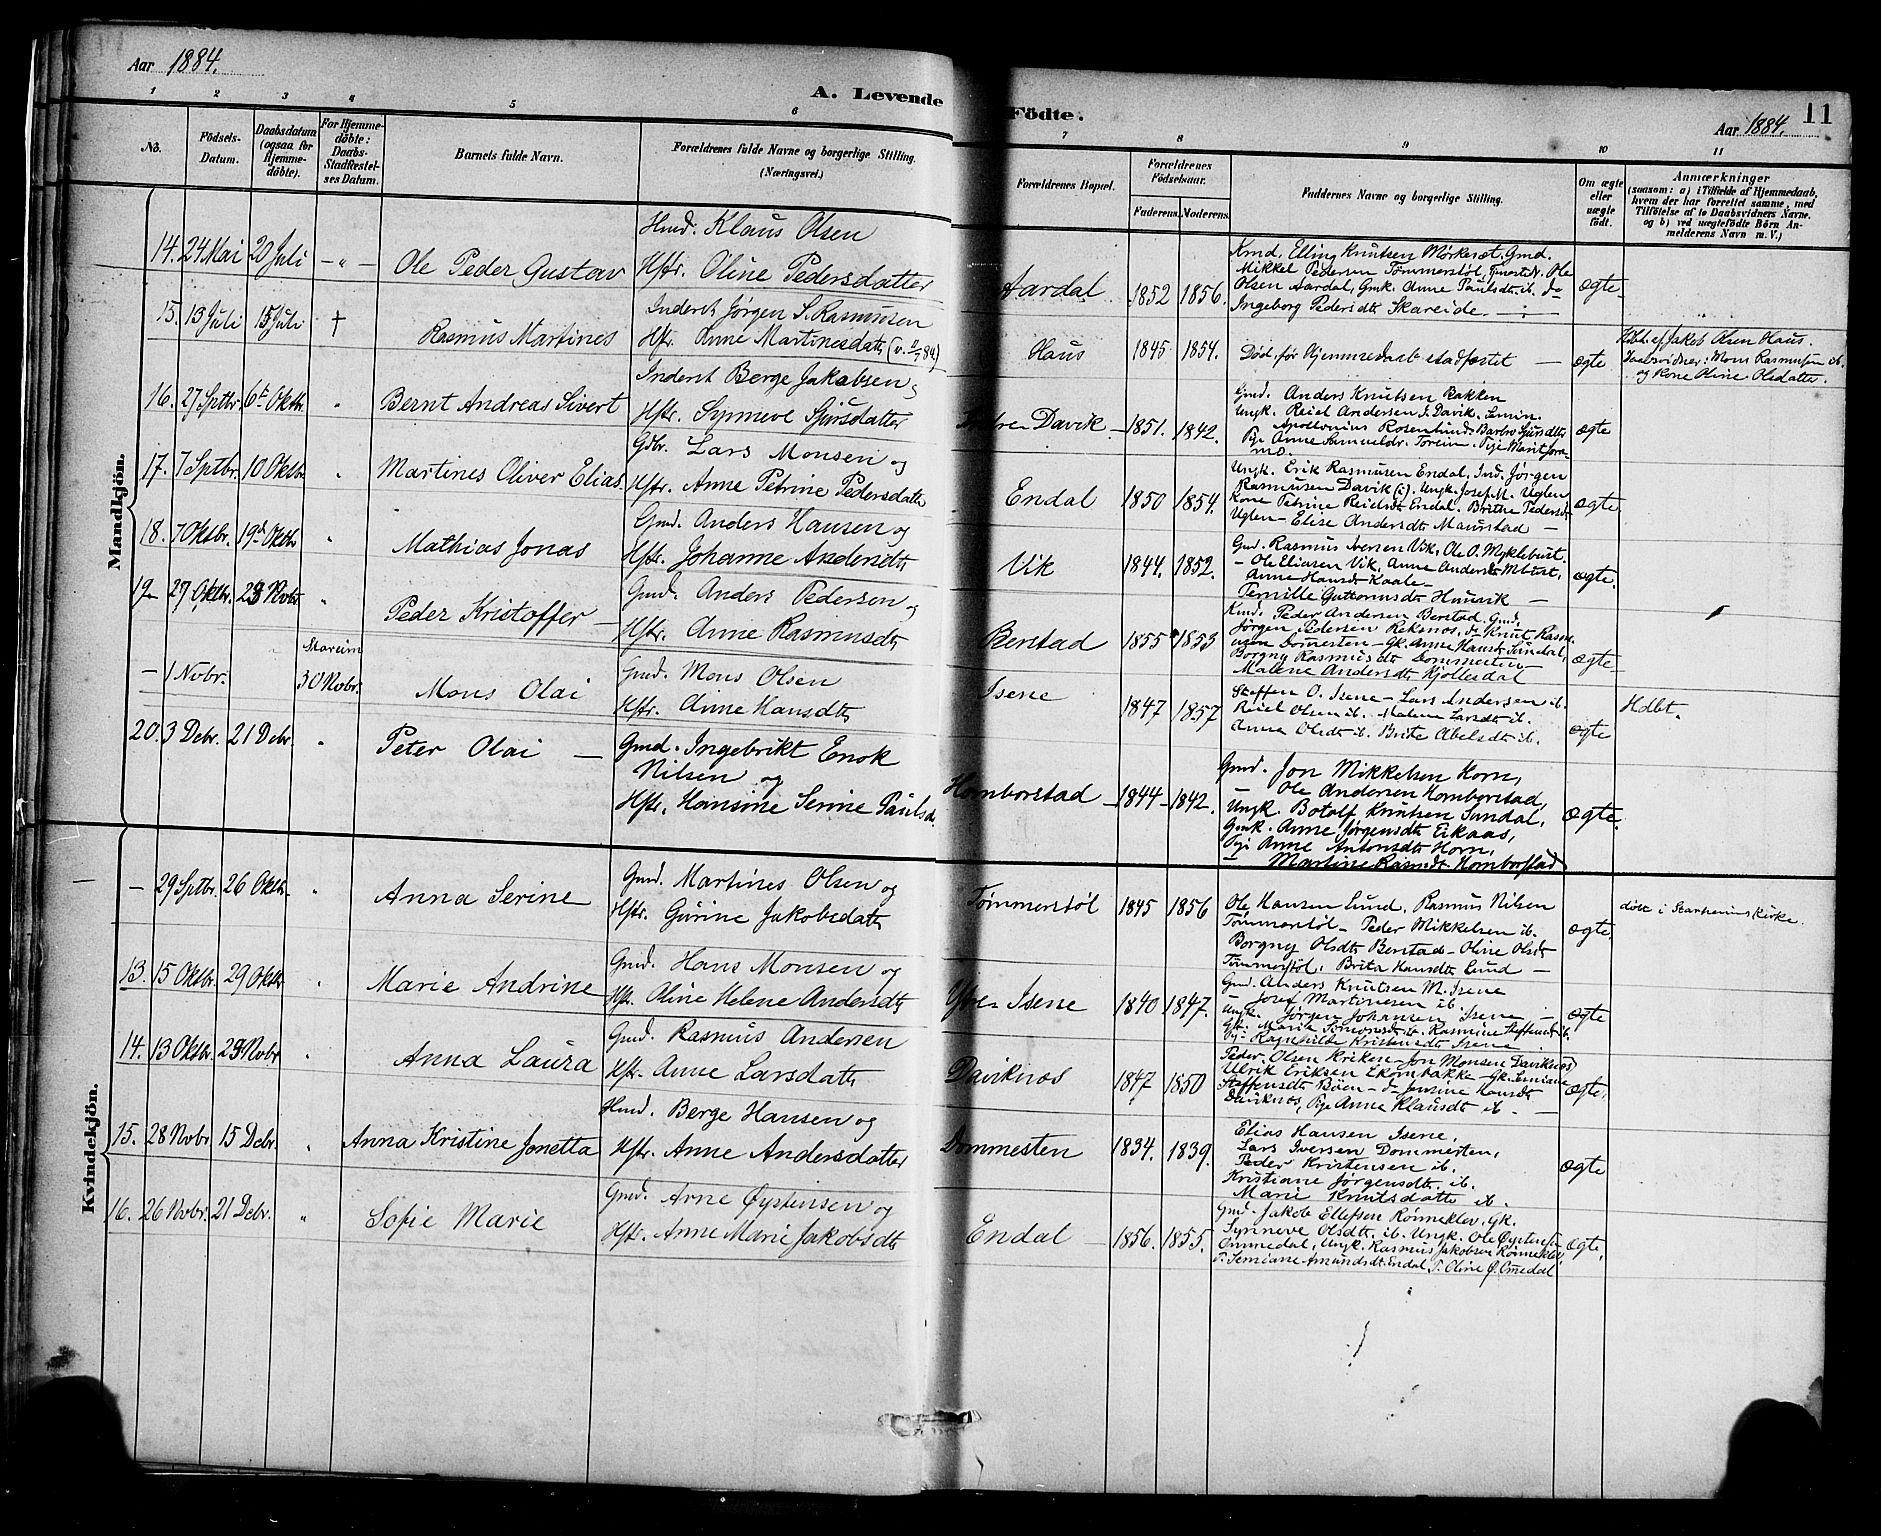 Aar 1884.
A. Levende Födte.
11
Aar 1884.
1 2 3 4 5 6 7 8 9 10 11
No.
Födsels-Datum.
Daabsdatum (ogsaa for Hjemme-döbte).
For Hjemme-döbte: Daabs-Stadfæstel-ses Datum.
Barnets fulde Navn.
Forældrenes fulde Navne og borgerlige Stilling.
(Næringsvei.)
Forældrenes Bopæl.
Forældrenes Födselsaar.
Faderens. Moderens.
Faddernes Navne og borgerlige Stilling.
Om ægte eller uægte födt.
Anmærkninger
(saasom: a) i Tilfælde af Hjemmedaab,
hvem der har forrettet samme, med
Tilföielse af to Daabsvidners Navne,
og b) ved uægtefödte Börn An-
melderens Navn m. V.)
Mandkjön.
14. 24 Mai 20 Juli - " - Ole Peder Gustav
Hmd. Klaus Olsen
Hstr. Oline Pedersdatter
Aardal 1852 1856.
Kmd. Elling Knutsen Mörkesæt, Gmd.
Mikkel Pedersen Tömmerstöl, Ole
Olsen Aardal, Gmk. Anne Paulsdt. ib. do
Ingeborg Pedersdt Skareide
ægte
15. 13 Juli 15 Juli † Rasmus Martines
Inderst Jørgen S. Rasmussen
Hstr. Anne Martinesdatt
Haus 1845 1854.
Död för Hjemmedaab stadfæstet
ægte
Hdbt. af Jakob Olsen Haus.
Daabsvidner: Mons Rasmusen ib.
og kone Oline Olsdatter.
16. 27 Sptbr. 6te Oktbr. " Bernt Andreas Sivert
Inderst Berge Jakobsen og
Hstr. Synneve Sjursdatter
Davik 1851. 1842.
Gmd. Anders Knutsen Bakken
Ungk. Reiel Andersen I. Davik, Semin.
Apollonius Rosenlund, Barbro Sjursdtr
Pige Anne Samueldr. Toreim, Pige Marit
ægte
17. 7 Sptbr. 10 Oktbr " Martines Oliver Elias
Gdbr. Lars Monsen og
Hstr. Anne Petrine Pedersdatter
Endal 1850 1854.
Ungk. Erik Rasmusen Endal, Ind. Jørgen
Rasmusen Davik (i), Ungk. Josef M. Uglen
Kone Petrine Reielsdt Endal, Brithe Pedersdt
Uglen - Elise Andersdt Maurstad -
ægte
18. 7 Oktbr. 19de Oktbr " Mathias Jonas
Gmd. Anders Hansen og
Hstr. Johanne Andersdtr
Vik 1844. 1852.
Gmd. Rasmus Iversen Vik, Ole O. Myklebust.
- Ole Eliasen Vik, Anne Andersdt Mbust,
Anne Hansdt Kaale -
Pernille Guttormsdt Hunvik -
ægte.
19 - 27 Oktbr. 23 Novbr " Peder Kristoffer -
Gmd. Anders Pedersen og
Hstr. Anne Rasmusdtr
Berstad 1855 1853
Kmd. Peder Andersen Berstad, Gmd.
Jørgen Pedersen Reksnos, do Knut Rasm
usen Dommesten - Gk. Anne Hansdt Sundal,
Borgny Rasmusdt Dommesten
Malene Andersdt Kjöllesdal
ægte
- 1 Novbr. 30 Novbr. Mons Olai
Gmd. Mons Olsen
Hstr. Anne Hansdtr
Isene 1847 1857
Steffen O. Isene - Lars Andersen ib.
Reiel Olsen ib. Malene Larsdt ib.
Anna Olsdt ib. Brite Abelsdt ib.
ægte
Hdbt.
20. 3 Debr. 21 Debr. " Peter Olai -
Gmd. Ingebrikt Enok
Nilsen og
Hstr. Hansine Serine Paulsd.
Homborstad 1844 1842.
Gmd. Jon Mikkelsen Horn,
- Ole Andersen Homborstad,
Ungk. Botolf Knutsen Sundal,
Gmk. Anne Jørgensdt Eikaas,
Pige Anne Antonsdt Horn,
- Martine Rasmdt Homborstad
ægte.
Kvindekjön.
- 29 Sptbr. 26 Oktbr. " Anna Serine
Gmd. Martines Olsen og
Hstr. Gurine Jakobsdatr
Tömmerstöl 1845 1856
Ole Hansen Lund, Rasmus Nilsen
Tömmerstöl - Peder Mikkelsen ib.
Borgny Olsdt Berstad - Oline Olsdt
Tömmerstöl, Brita Hansdt Lund -
ægte.
döbt i kirke.
13. 15 Oktbr. 29 Oktbr " Marie Andrine
Gmd. Hans Monsen og
Hstr. Oline Helene Andersdtr
Ytre Isene 1840 1847.
Gmd. Anders Knutsen M. Isene
- Josef Martinesen ib.
Ungk. Jørgen Johansen Isene -
Gk. Maria Simonsdt ib. Rasmine Steffensdt ib.
Pig. Ragnhilde Kristensdt Isene
ægte
14. 13 Oktbr. 23 Novbr " Anna Laura
Gmd. Rasmus Andersen
Hstr. Anne Larsdatr
Daviknos 1847 1850
Peder Olsen Kriken - Jon Monsen Daviknos
Ulrik Eriksen Ekornbakke - Gk. Semiane
Staffensdt Böen - do Jensine Hansdt
Daviknos, Pige Anne Klausdt ib. -
ægte.
15. 28 Novbr 15 Debr. " Anna Kristine Jonetta
Hmd. Berge Hansen og
Hstr. Anne Andersdatter
Dommesten 1834. 1839.
Elias Hansen Isene,
Lars Iversen Dommesten,
Peder Kristensen ib.
Kristiane Jørgensdt ib.
Marie Knutsdatter ib.
ægte
16. 26 Novbr. 21 Debr. " Sofie Marie
Gmd. Arne Øystensen og
Hstr. Anne Marie Jakobsdtr
Endal 1856. 1855.
Gmd. Jakob Ellefsen Rönneklev, Gk.
Synneve Olsdtr. ib. Ungk. Ole Øystens
Ommedal, Ungk. Rasmus Jakobsen Rönneklev
P. Semiane Amundsdt Endal, P. Oline Ø. Omedal
ægte.